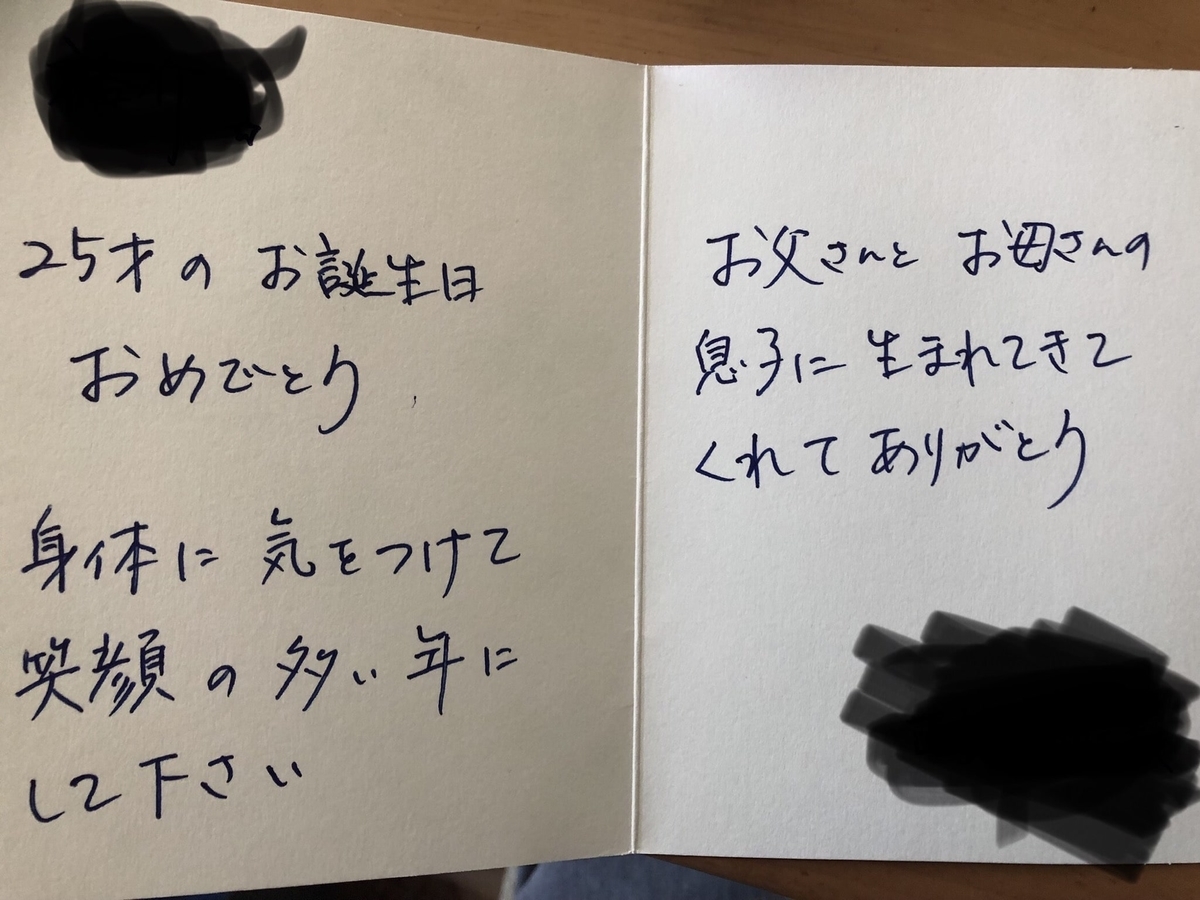 25才の お誕生日
おめでとう
身体に 気をつけて
笑顔の 多い 年に
して下さい
お父さんと お母さんの
息子に 生まれてきて
くれて ありがとう